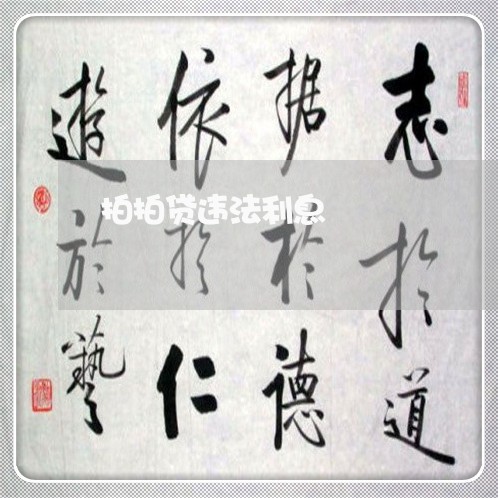 志於道
据於德
依於仁
遊於藝
拍拍贷违法利息